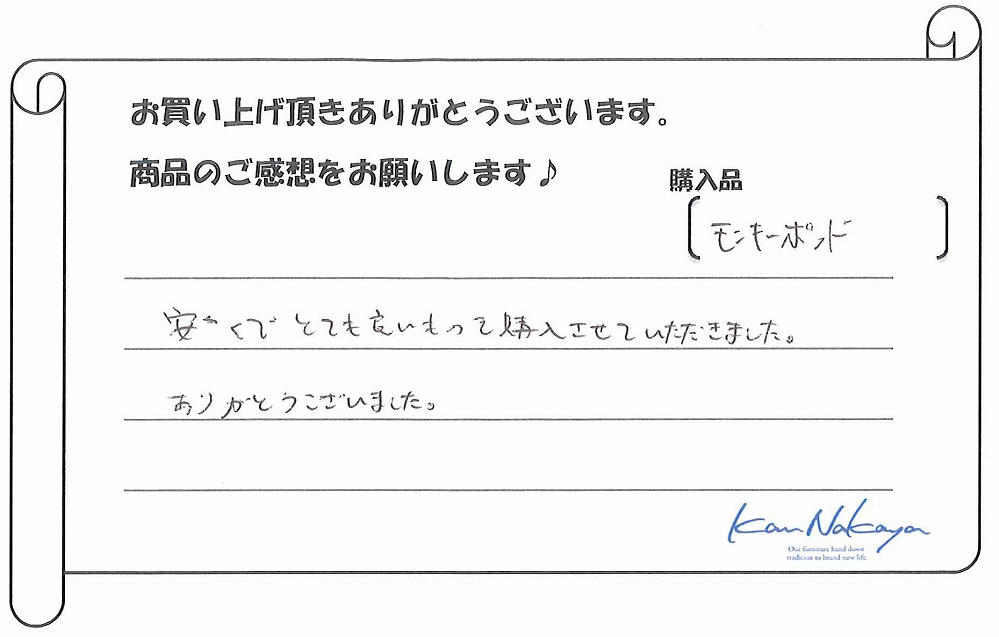 お買い上げ頂きありがとうございます。
商品のご感想をお願いします♪
購入品
モンキーポッド
安くで とても良いもって購入させていただきました。
ありがとうございました。
Kan Nakaya
Our furniture hand down
tradition to brand-new life.